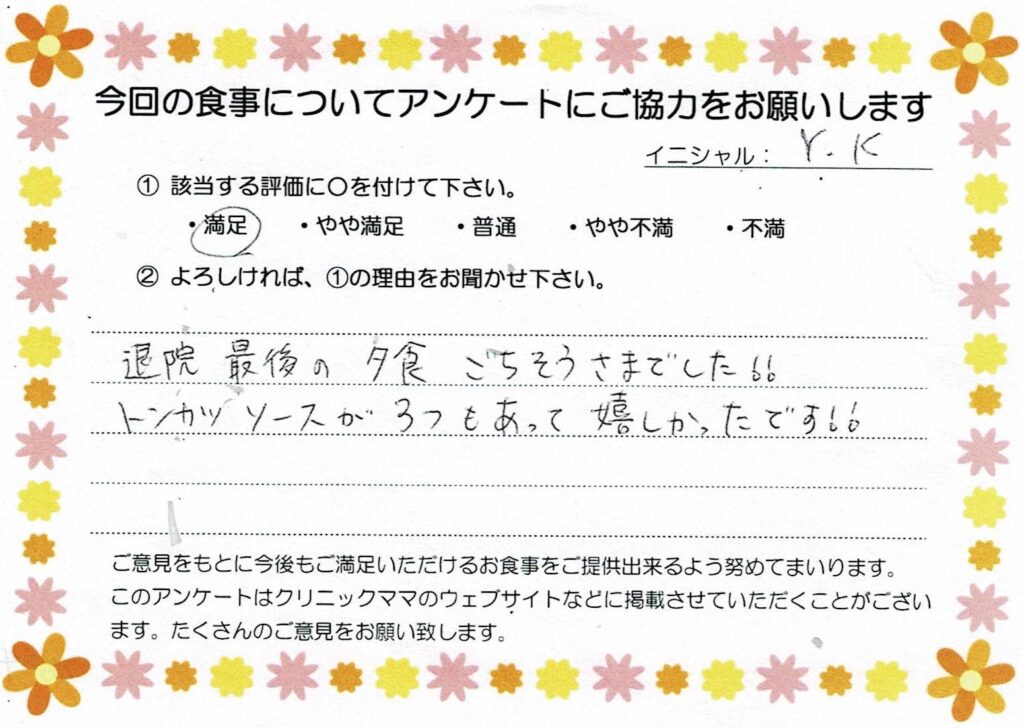 今回の食事についてアンケートにご協力をお願いします
イニシャル： Y.K
① 該当する評価に〇を付けて下さい。
・満足 ・やや満足 ・普通 ・やや不満 ・不満
② よろしければ、①の理由をお聞かせ下さい。
退院 最後の 夕食 ごちそうさまでした!!
トンカツ ソースが 3つもあって 嬉しかったです!!
ご意見をもとに今後もご満足いただけるお食事をご提供出来るよう努めてまいります。
このアンケートはクリニックママのウェブサイトなどに掲載させていただくことがござい
ます。たくさんのご意見をお願い致します。